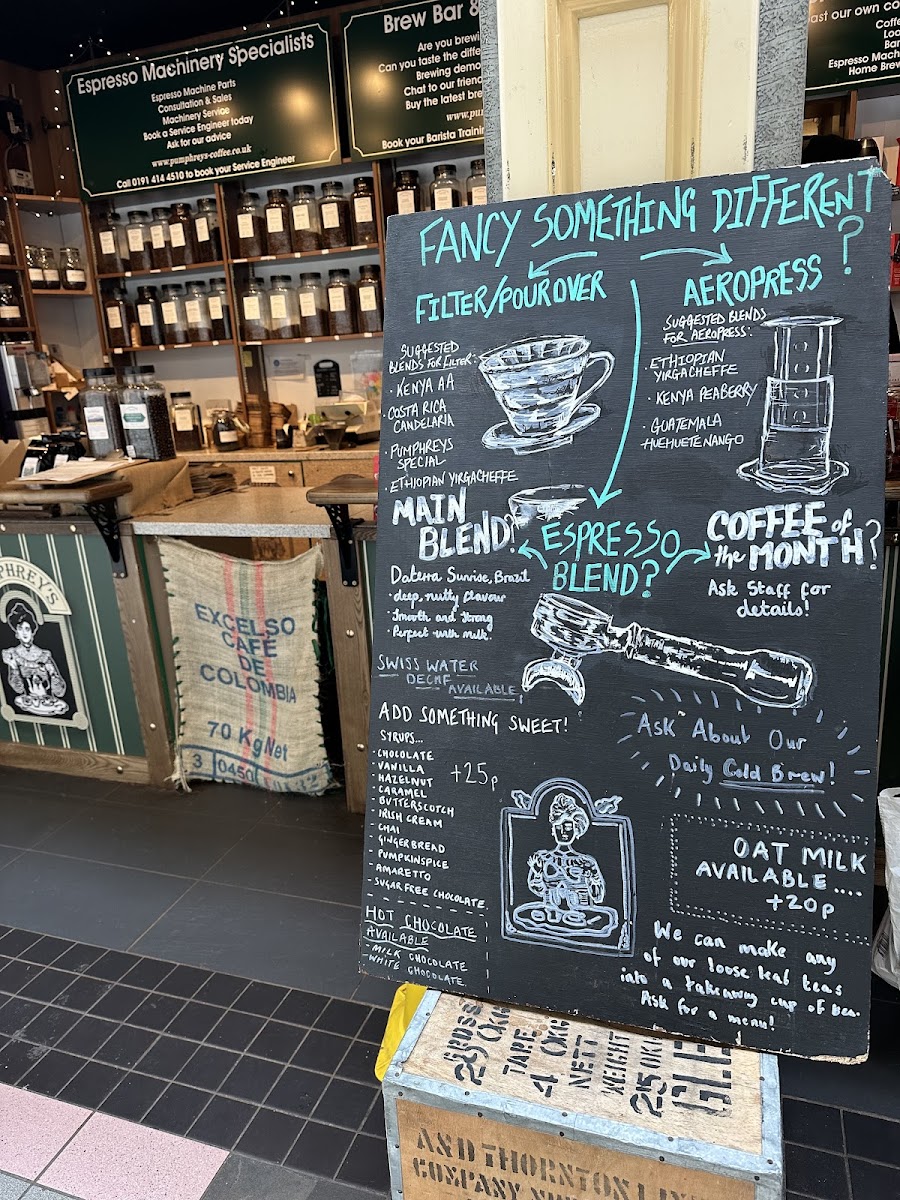 Espresso Machinery Specialists
Espresso Machine Parts
Consultation & Sales
Machinery Service
Book a Service Engineer today
Ask for our advice
www.pumphreys-coffee.co.uk
Call 0191 414 4510 to book your Service Engineer
Brew Bar &
Are you brewi
Can you taste the diffe
Brewing demo
Chat to our frien
Buy the latest bre
www.pu
Book your Barista Trainin
ast our own co
Coffe
Loo
Bar
Espresso Mach
Home Brew
FANCY SOMETHING DIFFERENT?
FILTER/POUROVER
SUGGESTED
BLENDS FOR FILTER:
· KENYA AA
· COSTA RICA
CANDELARIA
· PUMPHREYS
SPECIAL
· ETHIOPIAN YIRGACHEFFE
AEROPRESS
SUGGESTED BLENDS
FOR AEROPRESS:
· ETHIOPIAN
YIRGACHEFFE
· KENYA PEABERRY
· GUATEMALA
HUEHUETENANGO
ESPRESSO
BLEND?
MAIN
BLEND?
Daterra Sunrise, Brazil
· deep, nutty flavour
· Smooth and Strong
· Perfect with milk!
COFFEE of
the MONTH?
Ask Staff for
details!
SWISS WATER
DECAF
AVAILABLE
ADD SOMETHING SWEET!
SYRUPS...
- CHOCOLATE
- VANILLA
- HAZELNUT
- CARAMEL
- BUTTERSCOTCH
- IRISH CREAM
- CHAI
- GINGERBREAD
- PUMPKINSPICE
- AMARETTO
- SUGAR FREE CHOCOLATE
+25p
HOT CHOCOLATE
AVAILABLE
- MILK CHOCOLATE
- WHITE CHOCOLATE
Ask About Our
Daily Cold Brew!
OAT MILK
AVAILABLE ....
+20p
We can make any
of our loose leaf teas
into a takeaway cup of tea.
Ask for a menu!
PHREY'S
EXCELSO
CAFE
DE
COLOMBIA
70 Kg Net
3 0450
GROSS
TARE
NETT
WEIGHT
COMPANY